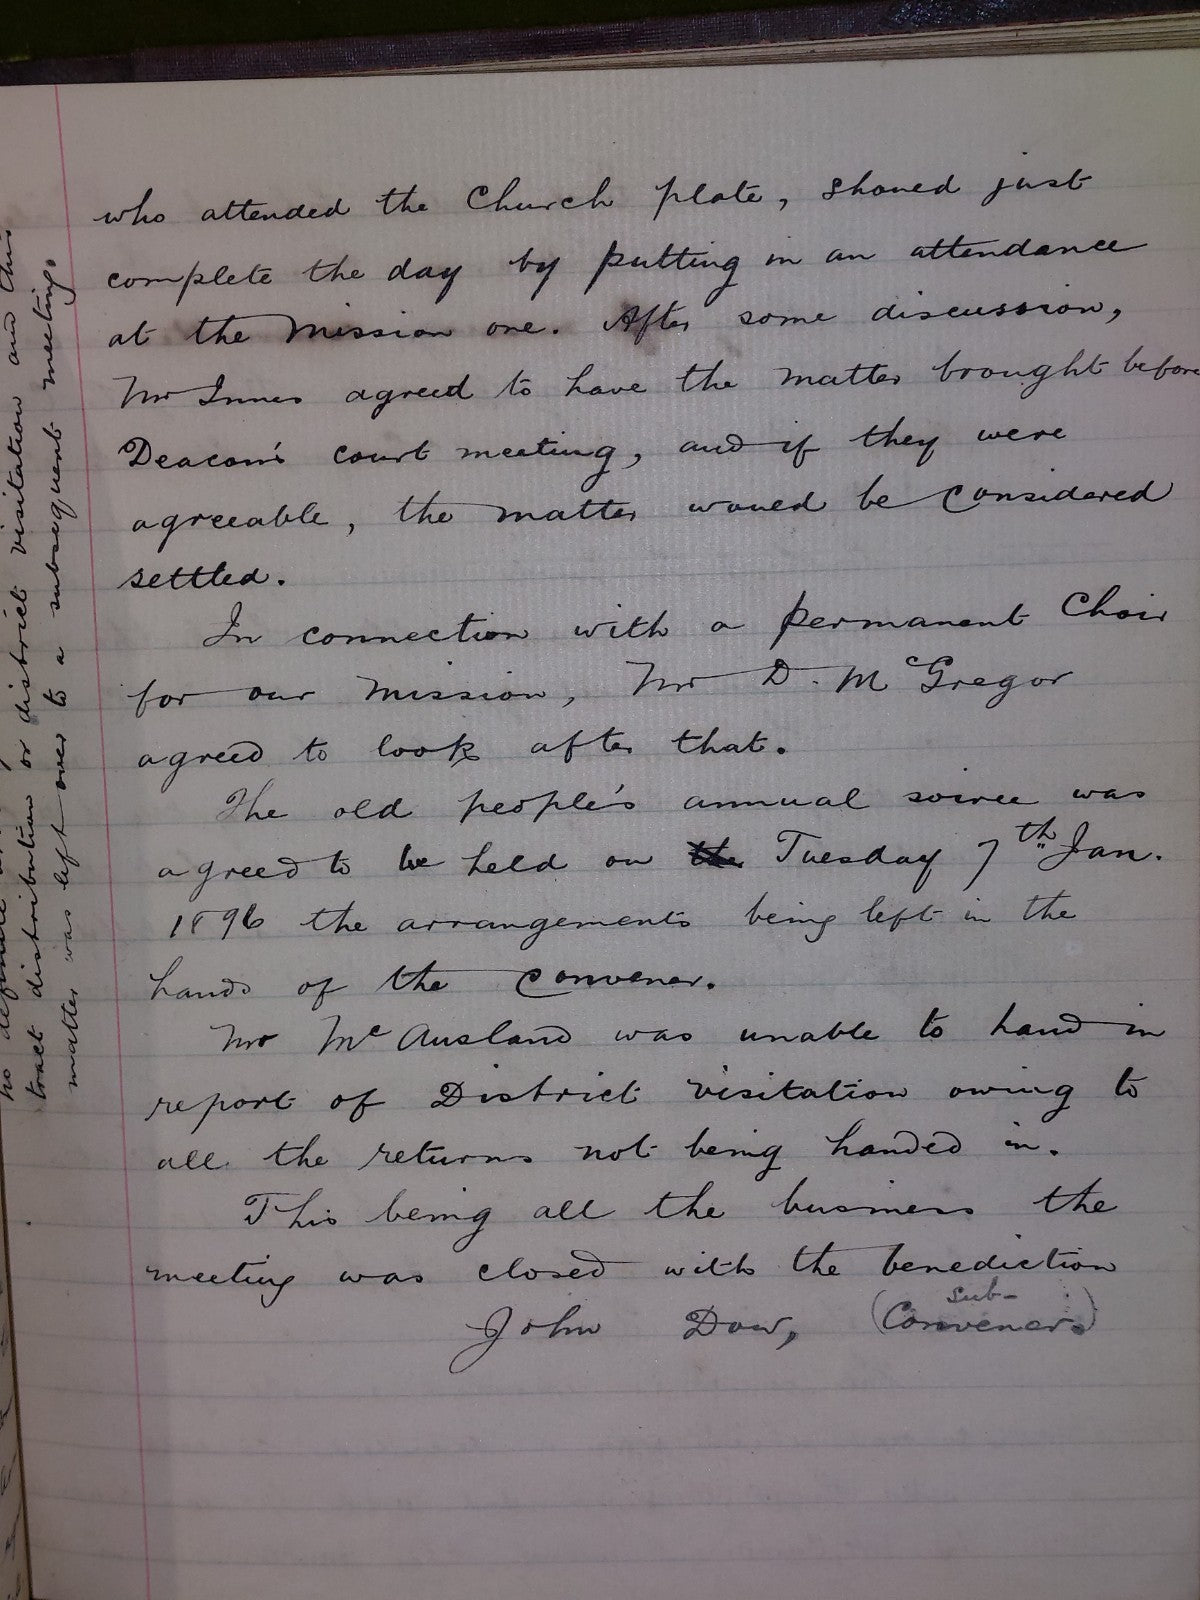 who attended the Church plate, shoued just
complete the day by putting in an attendance
at the Mission one. After some discussion,
Mr Innes agreed to have the matter brought before
Deacon's court meeting, and if they were
agreeable, the matter woued be considered
settled.
In connection with a permanent Choir
for our Mission, Mr D. McGregor
agreed to look after that.
The old people's annual soiree was
agreed to be held on the Tuesday 7th Jan.
1896 the arrangements being left in the
hands of the Convener.
Mr McAusland was unable to hand in
report of District visitation owing to
all the returns not being handed in.
This being all the business the
meeting was closed with the benediction
John Dow, (Sub-Convener.)
no definite
tract distribution or district visitation and this
matter was left over to a subsequent meeting.